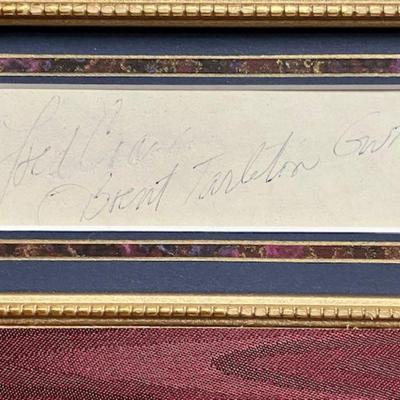 Fred Crane
Brent Tarleton GW